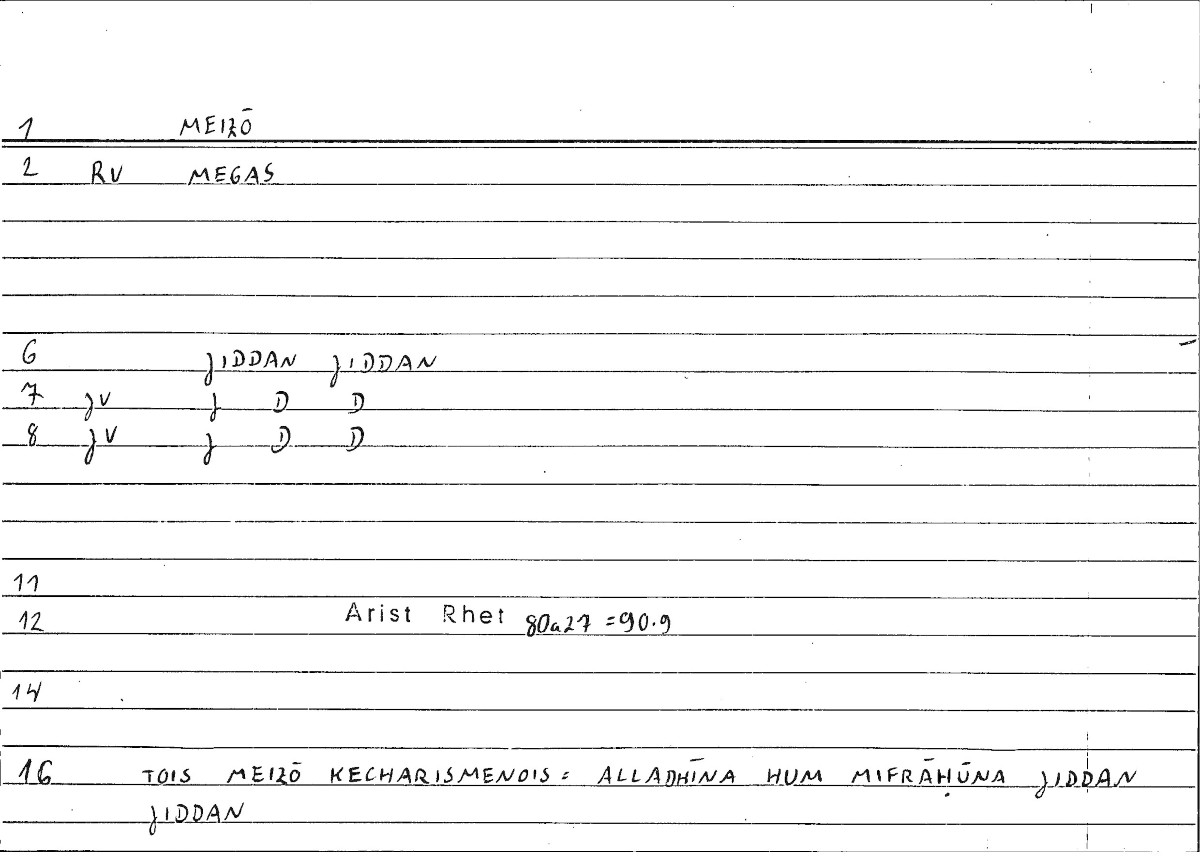 1 MEIZŌ
2 RV MEGAS
6 JIDDAN JIDDAN
7 JV J D D
8 JV J D D
11
12 Arist Rhet 80a27 = 90.9
14
16 TOIS MEIZŌ KECHARISMENOIS = ALLADHĪNA HUM MIFRĀḤŪNA JIDDAN
JIDDAN